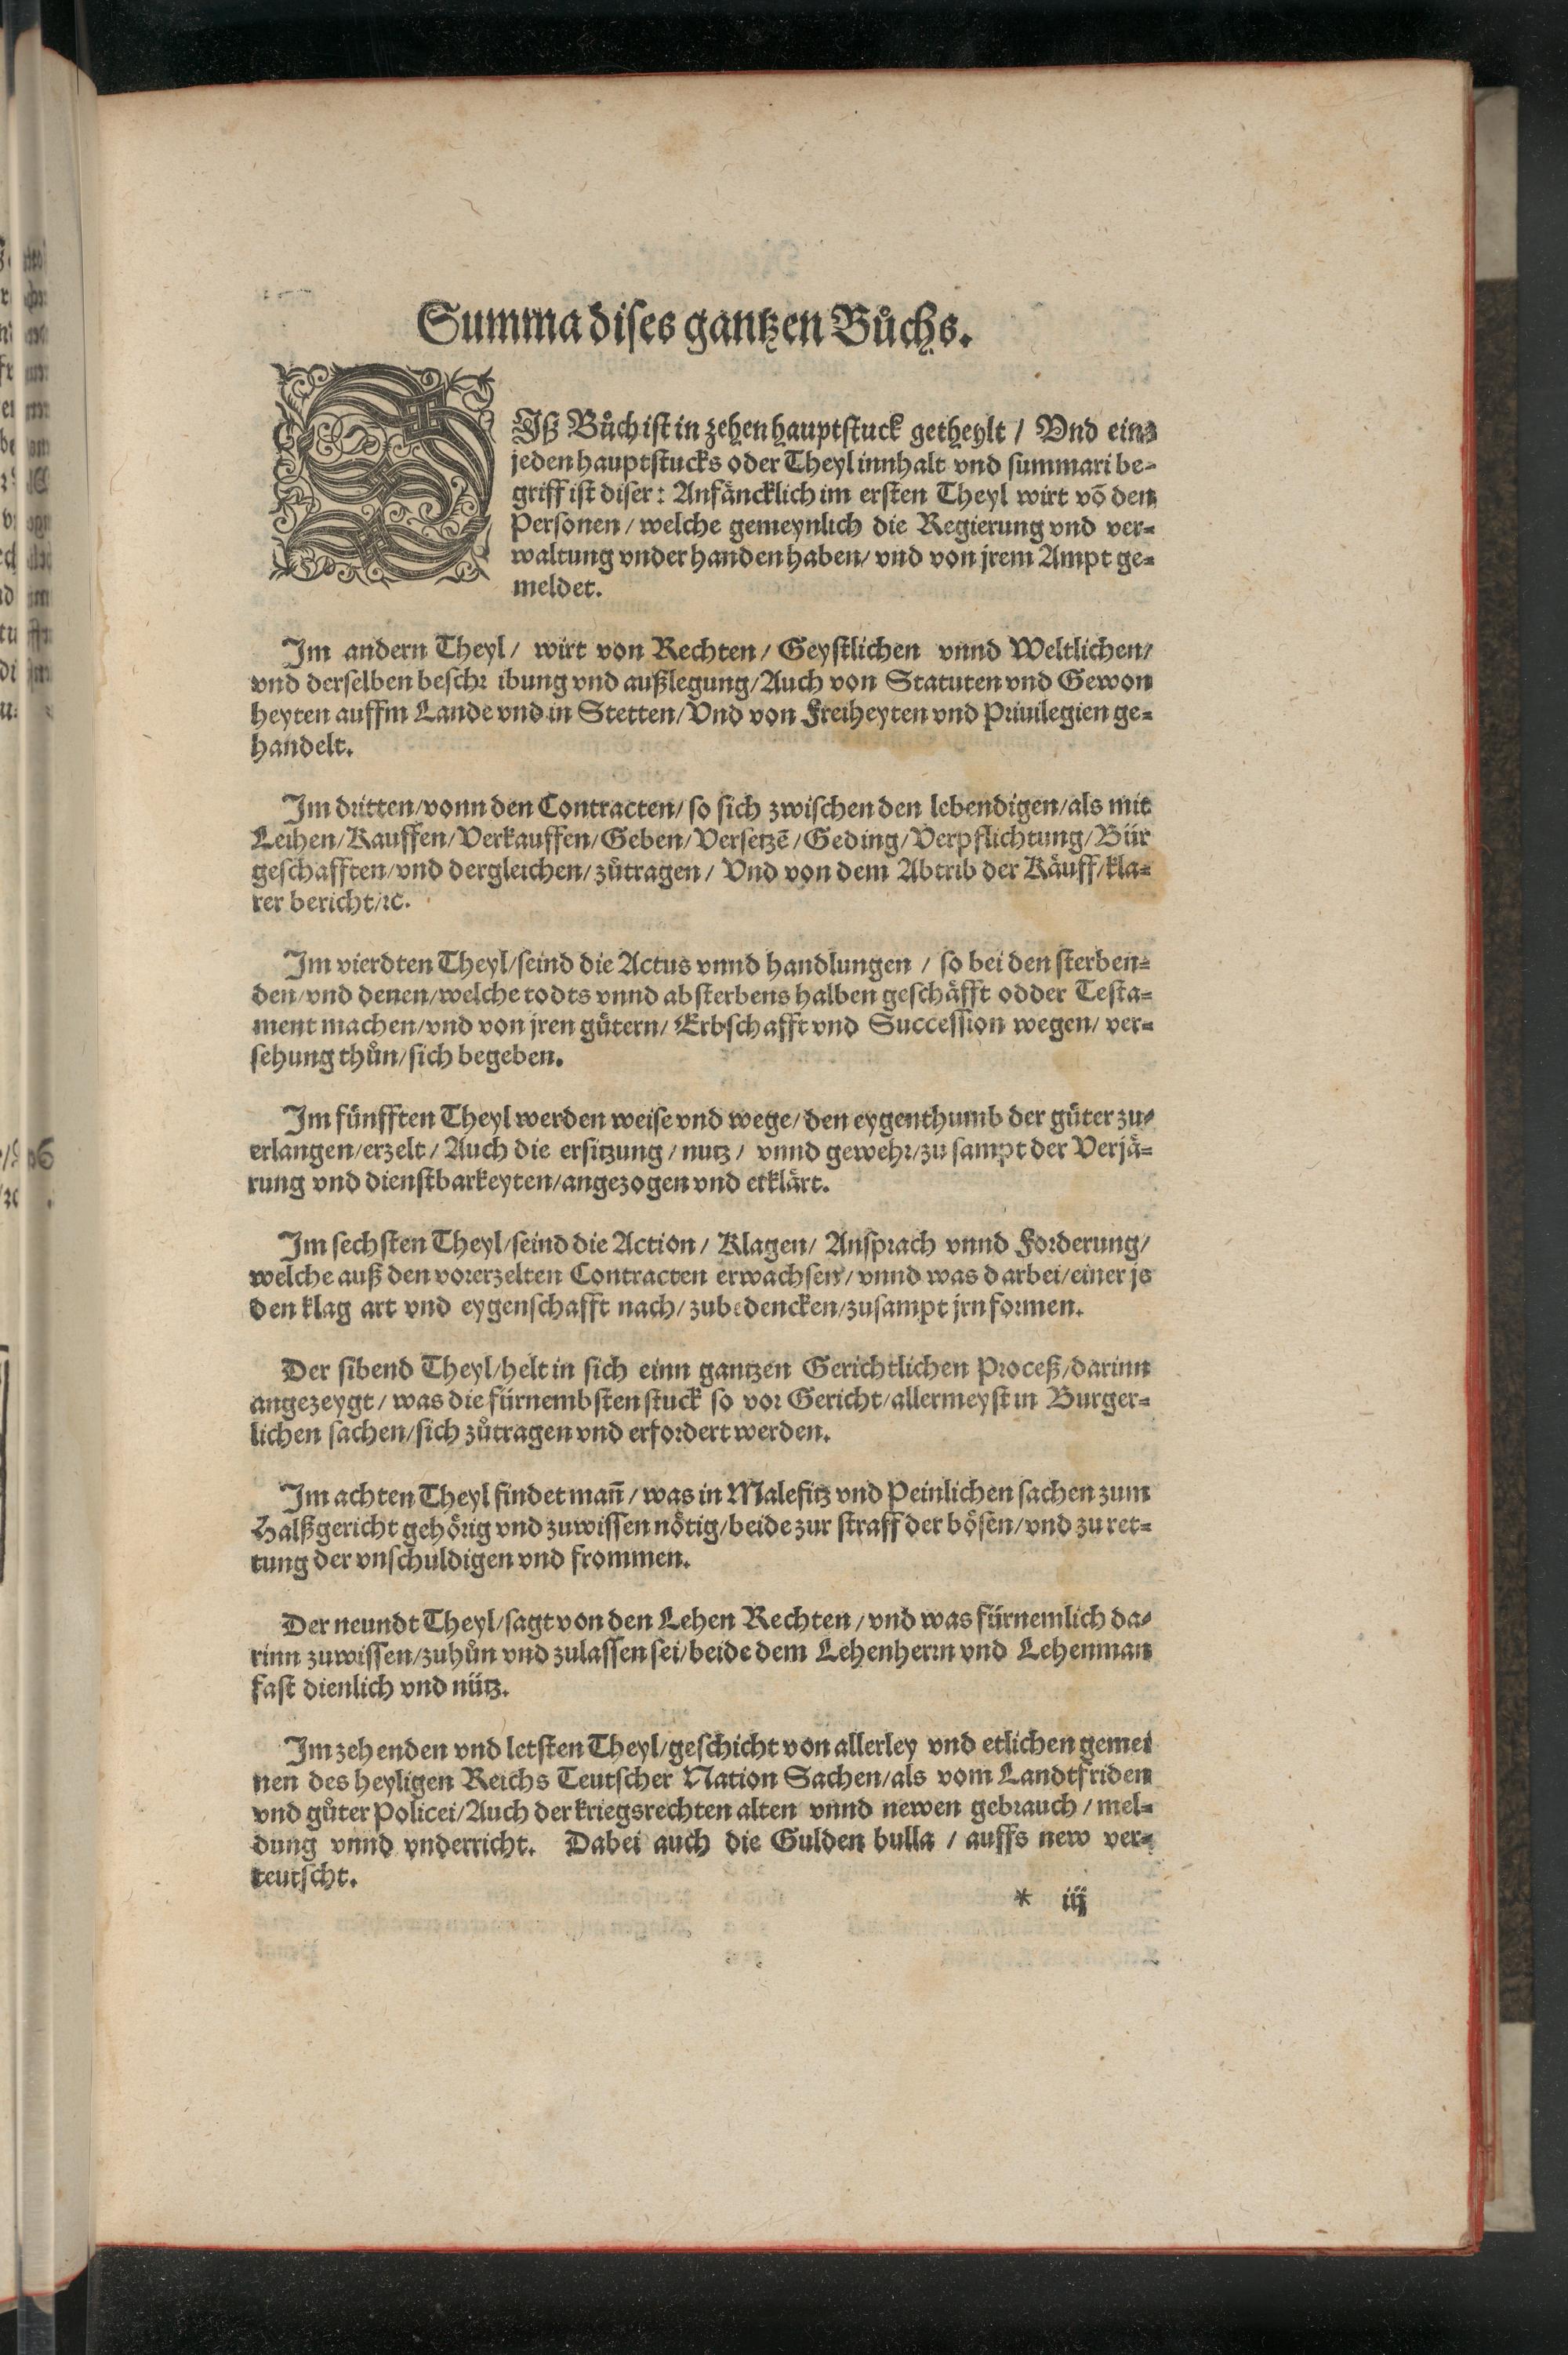 Summa dises gantzen Bůchs.
DIß Bůch ist in zehen hauptstuck getheylt / Vnd eins
jeden hauptstucks oder Theyl innhalt vnd summari be-
griff ist diser: Anfäncklich im ersten Theyl wirt võ den
Personen / welche gemeynlich die Regierung vnd ver-
waltung vnder handen haben / vnd von jrem Ampt ge-
meldet.
Im andern Theyl / wirt von Rechten / Geystlichen vnnd Weltlichen /
vnd derselben beschr ibung vnd außlegung / Auch von Statuten vnd Gewon
heyten auffm Lande vnd in Stetten / Vnd von Freiheyten vnd Priuilegien ge-
handelt.
Im dritten / vonn den Contracten / so sich zwischen den lebendigen / als mit
Leihen / Kauffen / Verkauffen / Geben / Versetzẽ / Geding / Verpflichtung / Bür
geschafften / vnd dergleichen / zůtragen / Vnd von dem Abtrib der Käuff / kla-
rer bericht / ꝛc.
Im vierdten Theyl / seind die Actus vnnd handlungen / so bei den sterben-
den / vnd denen / welche todts vnnd absterbens halben geschäfft odder Testa-
ment machen / vnd von jren gütern / Erbschafft vnd Succession wegen / ver-
sehung thůn / sich begeben.
Im fünfften Theyl werden weise vnd wege / den eygenthumb der güter zu-
erlangen / erzelt / Auch die ersitzung / nutz / vnnd gewehr / zu sampt der Verjä-
rung vnd dienstbarkeyten / angezogen vnd etklärt.
Im sechsten Theyl / seind die Action / Klagen / Ansprach vnnd Forderung /
welche auß den vorerzelten Contracten erwachsen / vnnd was darbei / einer je
den klag art vnd eygenschafft nach / zubedencken / zusampt jrn formen.
Der sibend Theyl / helt in sich einn gantzen Gerichtlichen Proceß / darinn
angezeygt / was die fürnembsten stuck so vor Gericht / allermeyst in Burger-
lichen sachen / sich zůtragen vnd erfordert werden.
Im achten Theyl findet mañ / was in Malefitz vnd Peinlichen sachen zum
Halßgericht gehörig vnd zuwissen nötig / beide zur straff der bösen / vnd zu ret-
tung der vnschuldigen vnd frommen.
Der neundt Theyl / sagt von den Lehen Rechten / vnd was fürnemlich da-
rinn zuwissen / zuhůn vnd zulassen sei / beide dem Lehenherrn vnd Lehenman
fast dienlich vnd nütz.
Im zehenden vnd letsten Theyl / geschicht von allerley vnd etlichen gemei
nen des heyligen Reichs Teutscher Nation Sachen / als vom Landtfriden
vnd gůter Policei / Auch der kriegsrechten alten vnnd newen gebrauch / mel-
dung vnnd vnderricht. Dabei auch die Gulden bulla / auffs new ver-
teutscht.
* iij